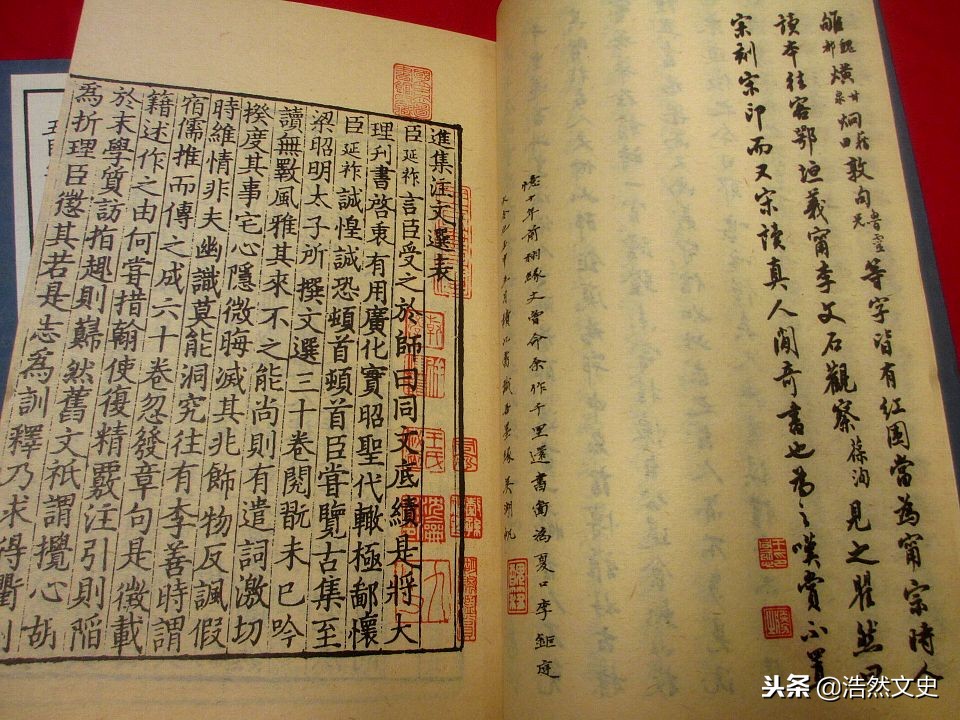 雒魏都爌甘泉烱藉田敦句魯靈光等字皆有紅圈當為甯宗時人
讀本往客鄂垣義甯李文石觀察葆洵見之瞿然曰
宋刻宋印而又宋讀真人間奇書也為之嘆賞不置
憶十年前栩緣丈曾命余作千里還書圖為夏口李
進集注文選表
臣延祚言臣受之於師曰同文底績是將大
理刊書啓衷有用廣化實昭聖代轍極鄙懷
臣延祚誠惶誠恐頓首頓首臣甞覽古集至
梁昭明太子所撰文選三十卷閱翫未已吟
讀無斁風雅其來不之能尚則有遣詞激切
揆度其事宅心隱微晦滅其兆飾物反諷假
時維情非夫幽識莫能洞究往有李善時謂
宿儒推而傳之成六十卷忽發章句是徵載
籍述作之由何甞措翰使復精覈注引則陷
於末學質訪指趣則巋然舊文祇謂攪心胡
為折理臣懲其若是志為訓釋乃求得衢州
頭条 @浩然文史